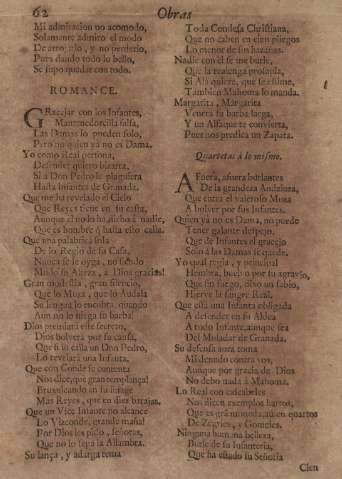 62
Obras
Mi admiracion no acomodo,
Solamente admiro el modo
De arrojarlo, y no perderlo,
Pues dando todo lo bello,
Se supo quedar con todo.
ROMANCE.
GRacejar con los Infantes,
falsa,
Las Damas lo pueden solo,
Pero no quien ya no es Dama.
Yo como Real persona,
Defender quiero bizarra,
Si à Don Pedro le plaguiera
Hasta Infantes de Granada.
Que me ha revelado el Cielo
Que Reyes tiene en su casta,
Aunque èl no lo ha dicho à nadie,
Que es hombre q̃ hasta esto calla.
Que una palabrica sola
De lo Regio de su Casa,
Nunca se le oyga, no siendo
Mudo su Alteza, à Dios gracias!
Gran modestia, gran silencio,
Que lo Muza, que lo Audala
Su lengua lo encubra, quando
Aun no lo niega su barba!
Dios premiarà este secreto,
Dios bolverà por su causa,
Que si lo calla un Don Pedro,
Lo revelarà una Infanta.
Que con Conde se contenta
Nos dice, que gran templança!
Bruxuleando en su linage
Mas Reyes, que en diez barajas.
Que un Vice Infante no alcance
Lo Vizconde, grande maña!
Por Dios les pido, señoras,
Que no lo sepa la Alhambra.
Su lança, y adarga toma
Toda Condesa Christiana,
Que no caben en cien pliegos
Lo menos de sus hazañas.
Nadie con èl se me burle,
Que la realenga prosapia,
Si Alà quiere, que sea fiime,
Tambien Mahoma lo manda.
Margarita, Margarita
Venera su barba larga,
Y un Alfaque te convierta,
Pues nos predica un Zapata.
Quartetas à lo mismo.
AFuera, afuera burlantes
De la grandeza Andaluza,
Que entra el valeroso Muza
A bolver por sus Infantes.
Quien ya no es Dama, no puede
Tener galante despejo,
Que de Infantes el gracejo
Solo à las Damas se quede.
Yo que regia, y principal
Hembra, buelvo por su agravio,
Que sin fuego, digo un sabio,
Hierve la sangre Real.
Que està una Infanta obligada
A defender en su Aldea
A todo Infante, aunque sea
Del Muladar de Granada.
Su defensa aora toma
Mi denudo contra vos,
Aunque por gracia de Dios
No debo nada à Mahoma.
Lo Real con cascabeles
Nos dicen exemplos hartos,
Que es grã moneda, aũ en quartos
De Zegries, y Gomeles.
Ninguna buena, no belleza,
Burle de su Infanteria,
Que ha estado su Señoria
Cien